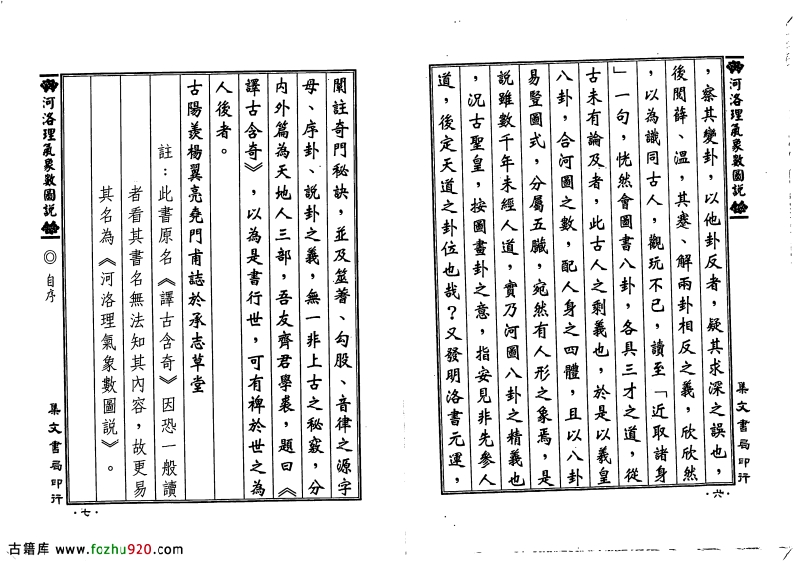 河洛理氣象數圖說
集文書局印行
·六·
，察其變卦，以他卦反者，疑其求深之誤也，
後閱薛、溫，其蹇、解兩卦相反之義，欣欣然
，以為識同古人，觀玩不已，讀至「近取諸身
」一句，恍然會圖書八卦，各具三才之道，從
古未有論及者，此古人之剩義也，於是以羲皇
八卦，合河圖之數，配人身之四體，且以八卦
易豎圖式，分屬五臟，宛然有人形之象焉，是
說雖數千年未經人道，實乃河圖八卦之精義也
，況古聖皇，按圖畫卦之意，指安見非先參人
道，後定天道之卦位也哉？又發明洛書元運，
闡註奇門秘訣，並及筮蓍、勾股、音律之源字
母、序卦、說卦之義，無一非上古之秘竅，分
內外篇為天地人三部，吾友齊君學裘，題曰《
譯古含奇》，以為是書行世，可有裨於世之為
人後者。
古陽羨楊翼亮堯門甫誌於承志草堂
註：此書原名《譯古含奇》因恐一般讀
者看其書名無法知其內容，故更易
其名為《河洛理氣象數圖說》。
河洛理氣象數圖說
◎自序
集文書局印行
·七·
古籍库 www.fozhu920.com